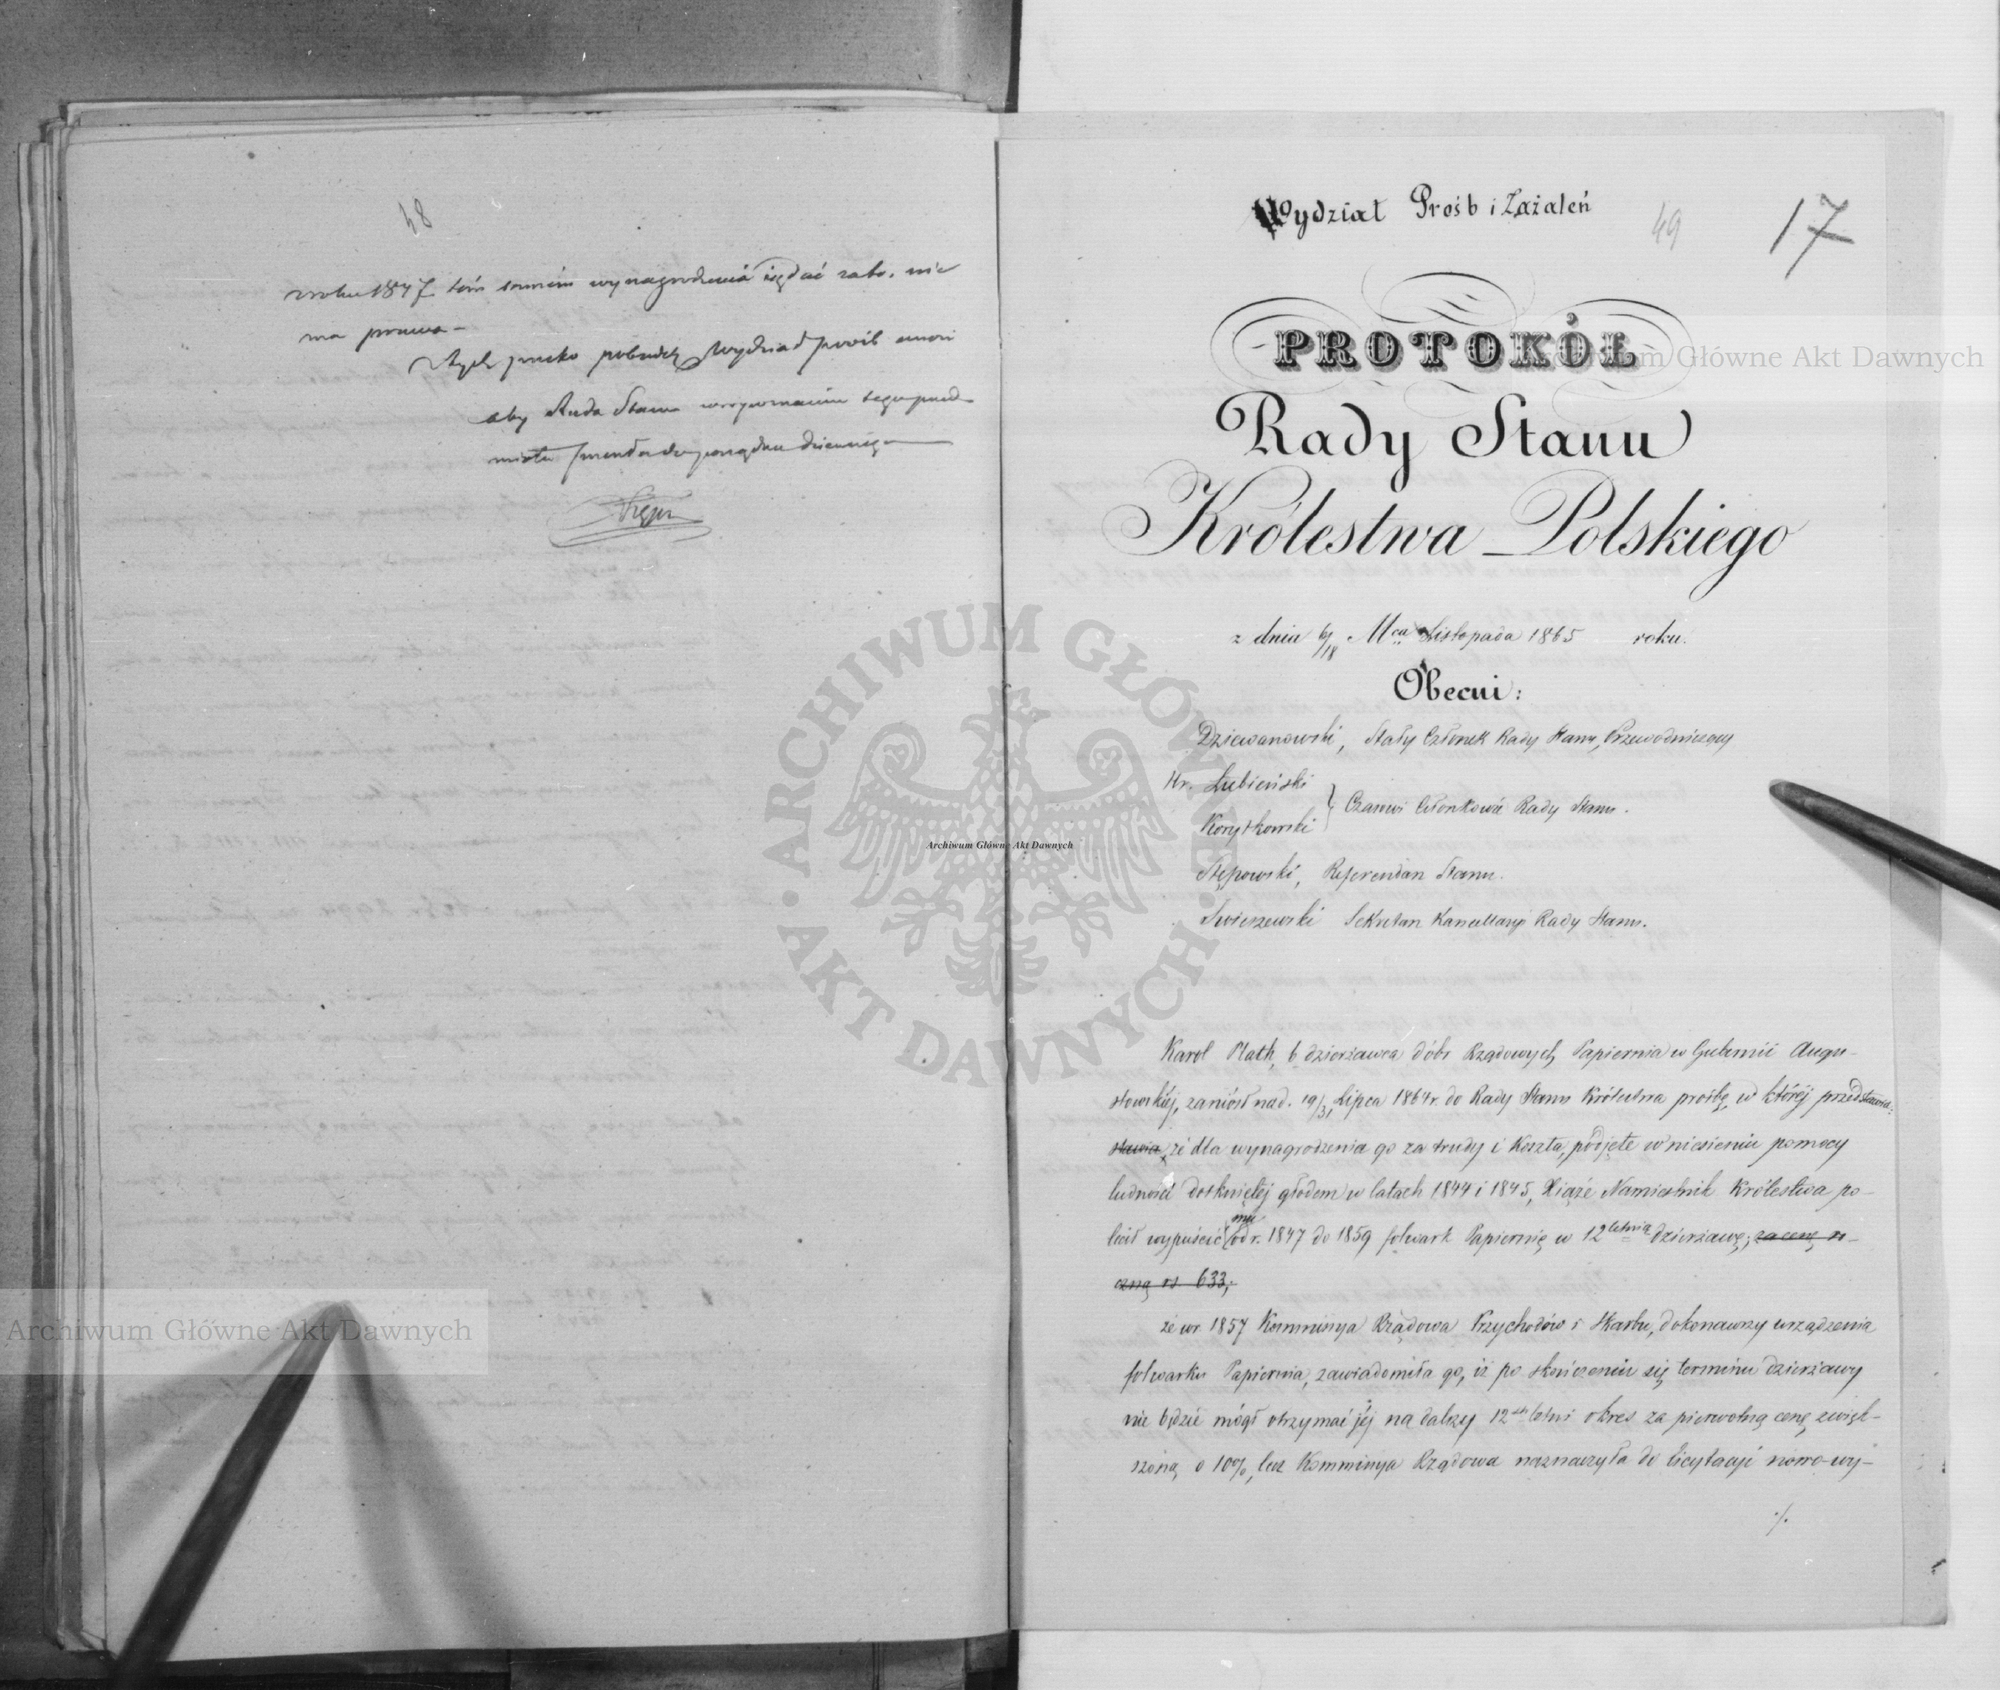 48
roku 1847 tém samém wynagrodzenia żądać za to, nie
ma prawa –
Z tych przeto pobudek Wydział prośb wnosi
aby Rada Stanu w tego przed-
miotu do porządku dziennego
Wydział Prośb i Zażaleń
49
17
PROTOKÓŁ
Rady Stanu
Królestwa Polskiego
z dnia 6/18 Mca Listopada 1865 roku.
Obecni:
Dziewanowski, Stały Członek Rady Stanu, Przewodniczący
Hr. Łubieński
Korytkowski } Czasowi Członkowie Rady Stanu.
Stępowski, Referendarz Stanu.
Świeszewski Sekretarz Kancellaryi Rady Stanu.
Karol Plath, b. dzierżawca dóbr Rządowych Papiernia w Gubernii Augu-
stowskiéj, zaniósł nad. 19/31 Lipca 1864 r. do Rady Stanu Królestwa prośbę, w któréj przedstawia:
stawia, że dla wynagrodzenia go za trudy i koszta, podjęte w niesieniu pomocy
ludności dotkniętéj głodem w latach 1844 i 1845, Xiąże Namiestnik Królestwa po-
lecił wypuścić mu od r. 1847 do 1859 folwark Papiernię w 12letnią dzierżawę; za cenę ro-
czną rs. 633;
że w r. 1857 Kommissya Rządowa Przychodów i Skarbu, dokonawszy urządzenia
folwarku Papiernia, zawiadomiła go, iż po skończeniu się terminu dzierżawy
nie będzie mógł otrzymać jéj na dalszy 12sto letni okres za pierwotną cenę zwięk-
szoną o 10%, lecz Kommissya Rządowa naznaczyła do licytacyi nowo-wy-
./.
Archiwum Główne Akt Dawnych
Archiwum Główne Akt Dawnych
Archiwum Główne Akt Dawnych
ARCHIWUM GŁÓWNE · AKT DAWNYCH ·